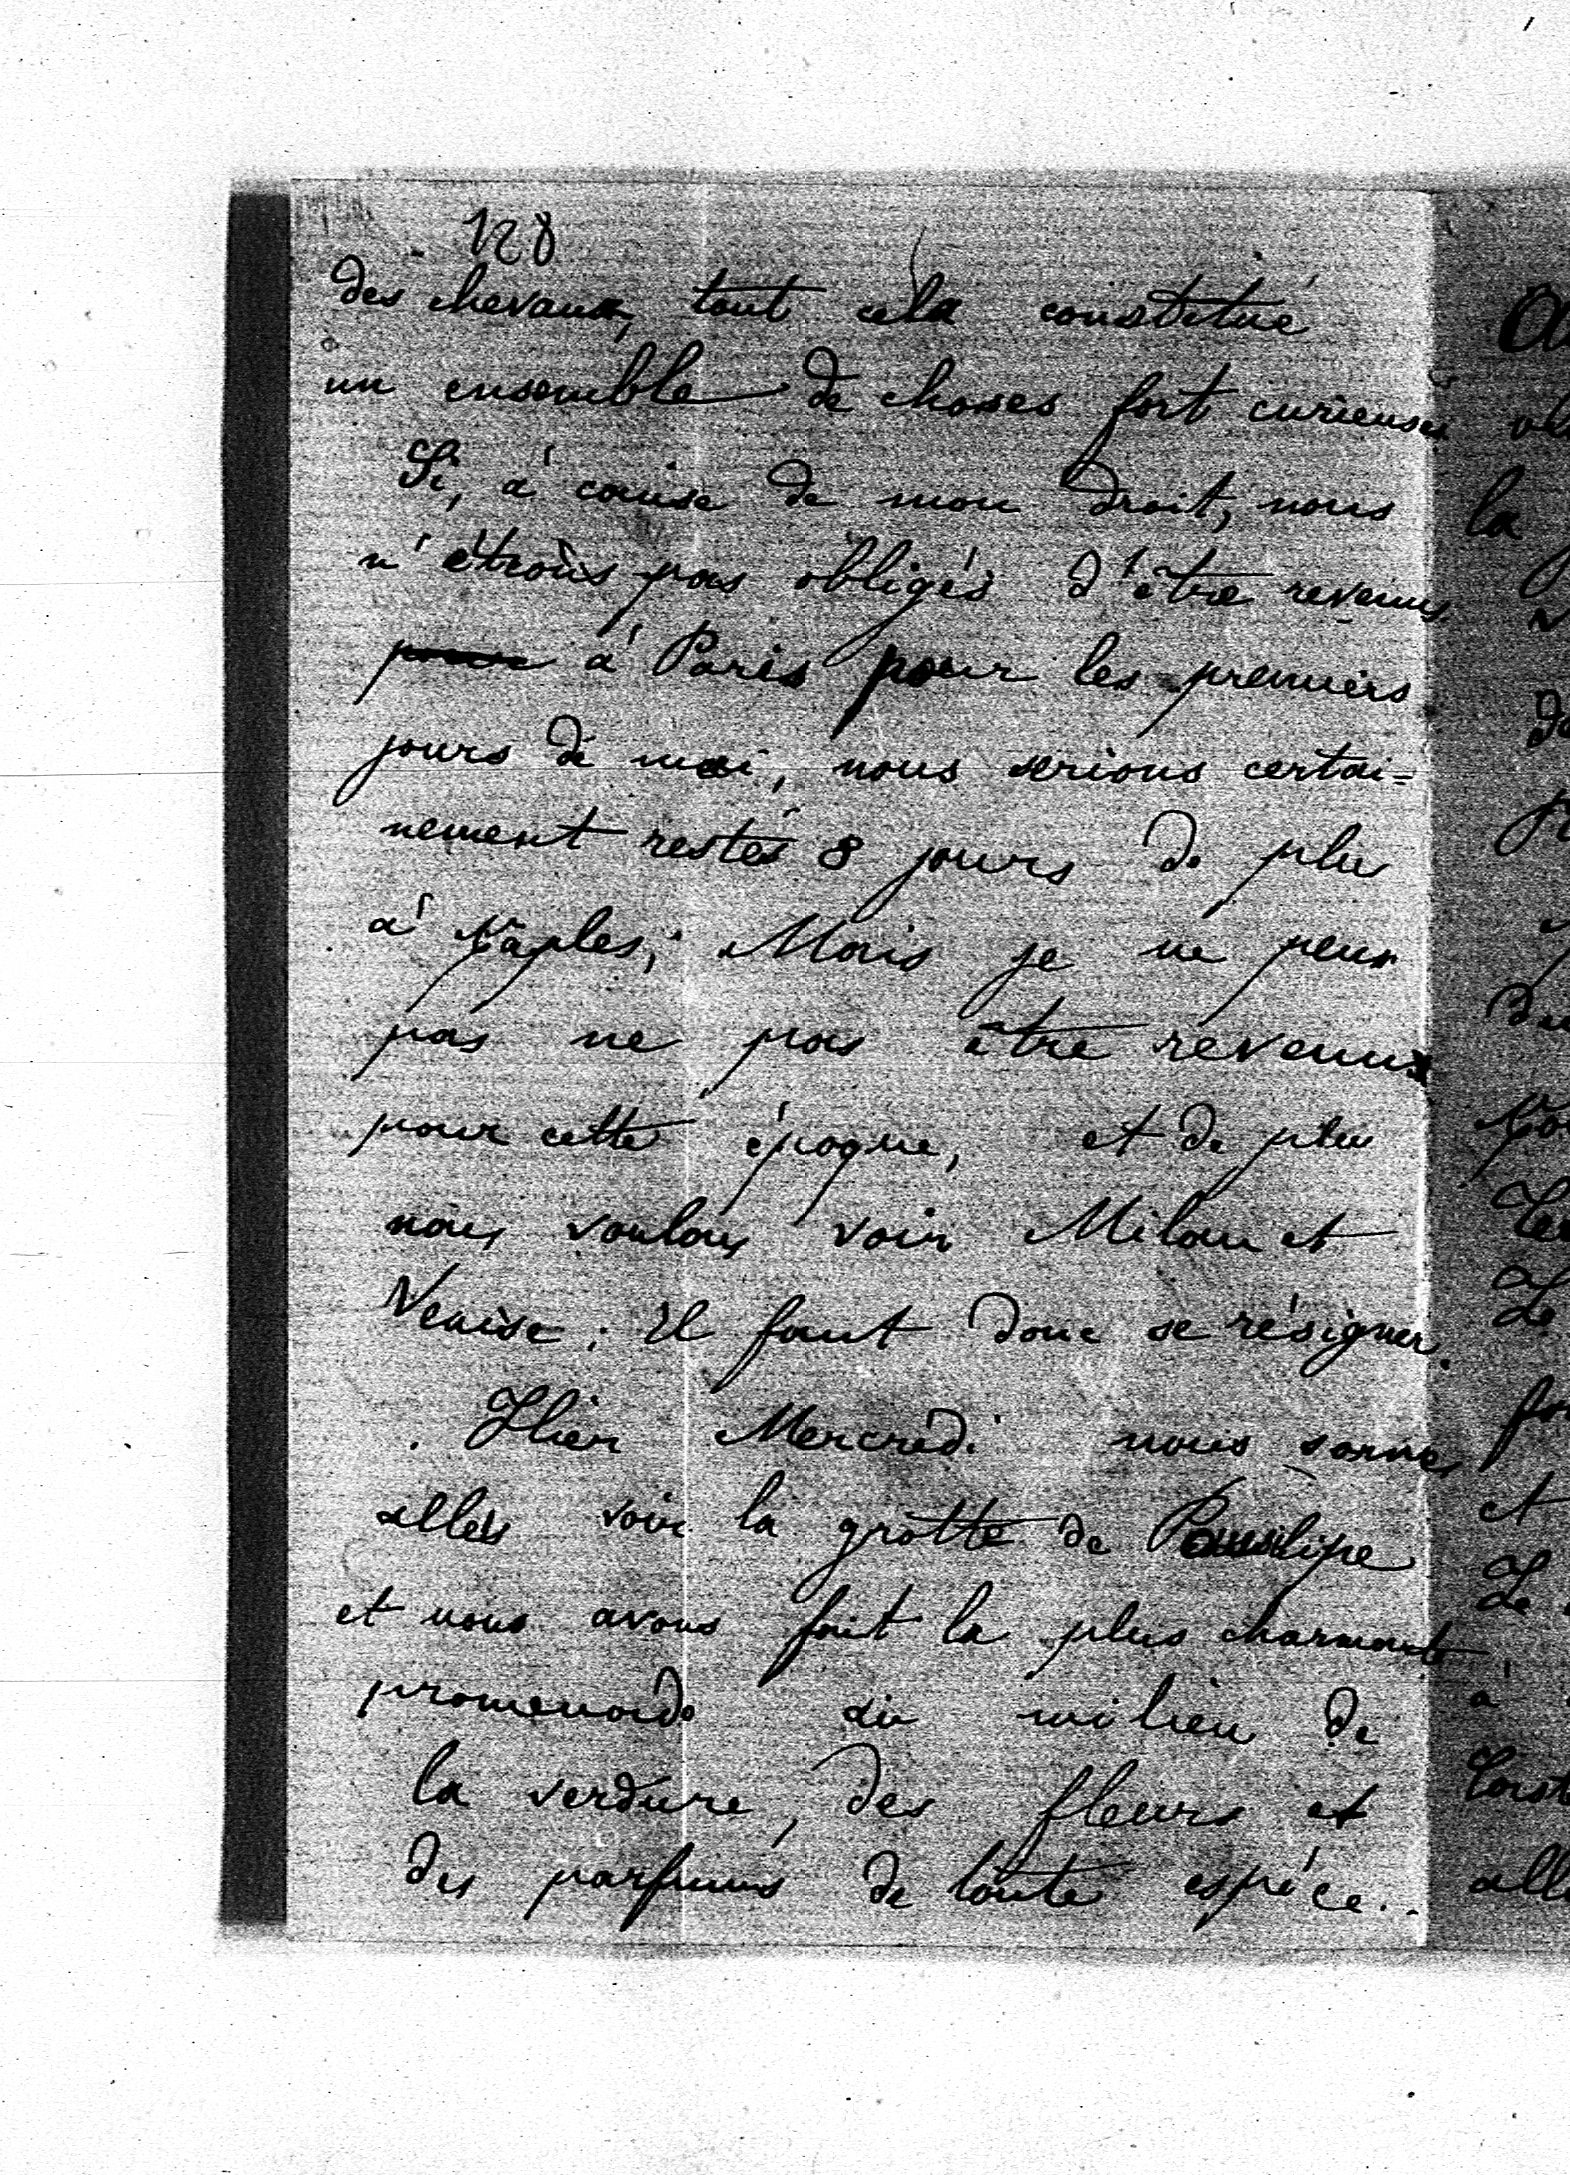 128
des chevaux, tout cela constitue
un ensemble de choses fort curieuses
Si, à cause de mon droit, nous
n'étions pas obligés d'être revenus
pour à Paris pour les premiers
jours de mai, nous serions certai=
nement restés 8 jours de plus
à Naples; Mais je ne peux
pas ne pas être revenu
pour cette époque, et de plus
nous voulons voir Milan et
Venise. Il faut donc se résigner.
Hier Mercredi nous sommes
allés voir la grotte de Pausilipe
et nous avons fait la plus charmante
promenade au milieu de
la verdure, des fleurs et
des parfums de toute espéce..